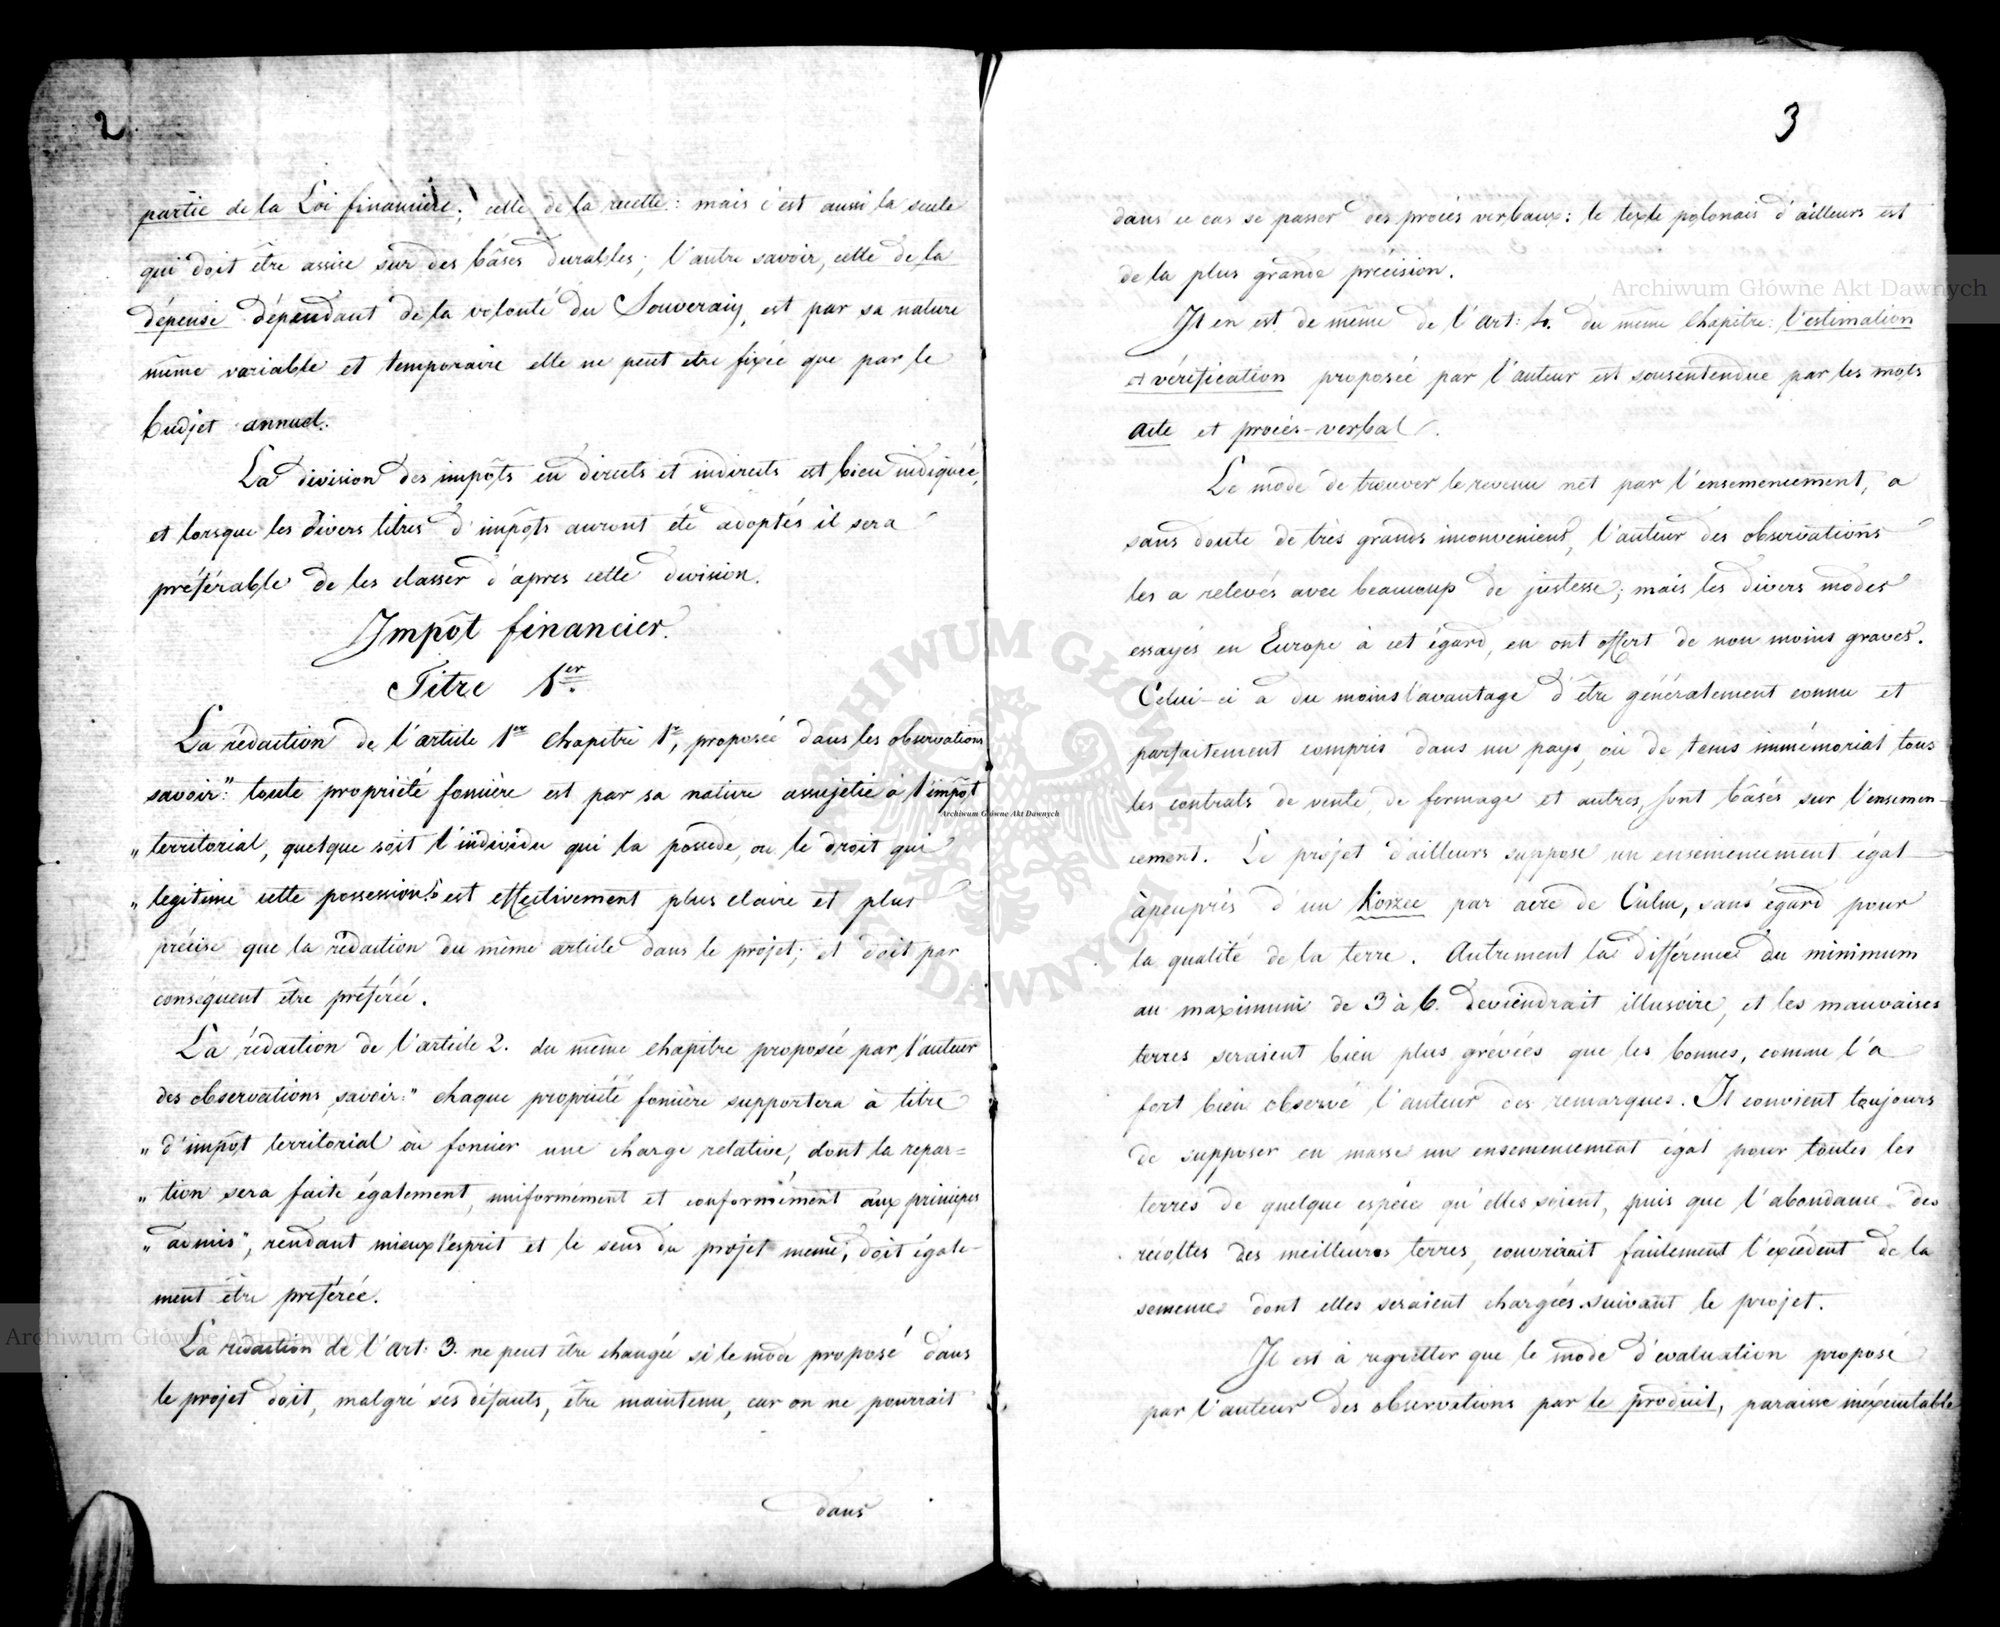 2
partie de la Loi financière; celle de la recette: mais c'est aussi la seule
qui doit être assise sur des bâses durables; l'autre savoir, celle de la
dépense dépendant de la volonté du Souverain, est par sa nature
même variable et temporaire elle ne peut etre fixée que par le
budjet annuel.
La division des impôts en directs et indirects est bien indiquée,
et lorsque les divers titres d'impôts auront été adoptés il sera
préférable de les classer d'apres cette division.
Impôt financier.
Titre 1er.
La rédaction de l'article 1er chapitre 1r, proposée dans les observations
savoir: "toute propriété foncière est par sa nature assujetie à l'impôt
" territorial, quelque soit l'individu qui la possede, ou le droit qui
" legitime cette possession" est effectivement plus claire et plus
précise que la rédaction du même article dans le projet; et doit par
conséquent être préféré.
La rédaction de l'article 2. du même chapitre proposée par l'auteur
des observations, savoir: "chaque propriété foncière supportera à titre
" d'impôt territorial ou foncier une charge relative, dont la repar=
" tion sera faite également, uniformément et conformément aux principes
" admis", rendant mieux l'esprit et le sens du projet meme, doit égale-
ment être préférée.
La rédaction de l'art: 3. ne peut être changée si le mode proposé dans
le projet doit, malgré ses défauts, être maintenu, car on ne pourrait
dans
3
dans ce cas se passer des procés verbaux: le texte polonais d'ailleurs est
de la plus grande précision.
Il en est de même de l'art: 4. du même Chapitre: l'estimation
et vérification proposée par l'auteur est sousentendue par les mots
acte et procés-verbal.
Le mode de trouver le revenu net par l'ensemencement, a
sans doute de très grands inconveniens, l'auteur des observations
les a relevés avec beaucoup de justesse; mais les divers modes
essayés en Europe à cet égard, en ont offert de non moins graves.
Celui-ci a du moins l'avantage d'être généralement connu et
parfaitement compris dans un pays, où de tems immémorial tous
les contrats de vente, de fermage et autres, sont bâsés sur l'ensemen-
cement. Le projet d'ailleurs suppose un ensemencement égal
àpeuprés d'un Korzec par acre de Culm, sans égard pour
la qualité de la terre. Autrement la différence du minimum
au maximum de 3 à 6. deviendrait illusoire, et les mauvaises
terres seraient bien plus grévées que les bonnes, comme l'a
fort bien observé l'auteur des remarques. Il convient toujours
de supposer en masse un ensemencement égal pour toutes les
terres de quelque espéce qu'elles soient, puis que l'abondance des
récoltes des meilleures terres, couvrirait facilement l'excédent de la
semence dont elles seraient chargées suivant le projet.
Il est à regretter que le mode d'évaluation proposé
par l'auteur des observations par le produit, paraisse inéxécutable
Archiwum Główne Akt Dawnych
Archiwum Główne Akt Dawnych
Archiwum Główne Akt Dawnych
ARCHIWUM GŁÓWNE AKT DAWNYCH